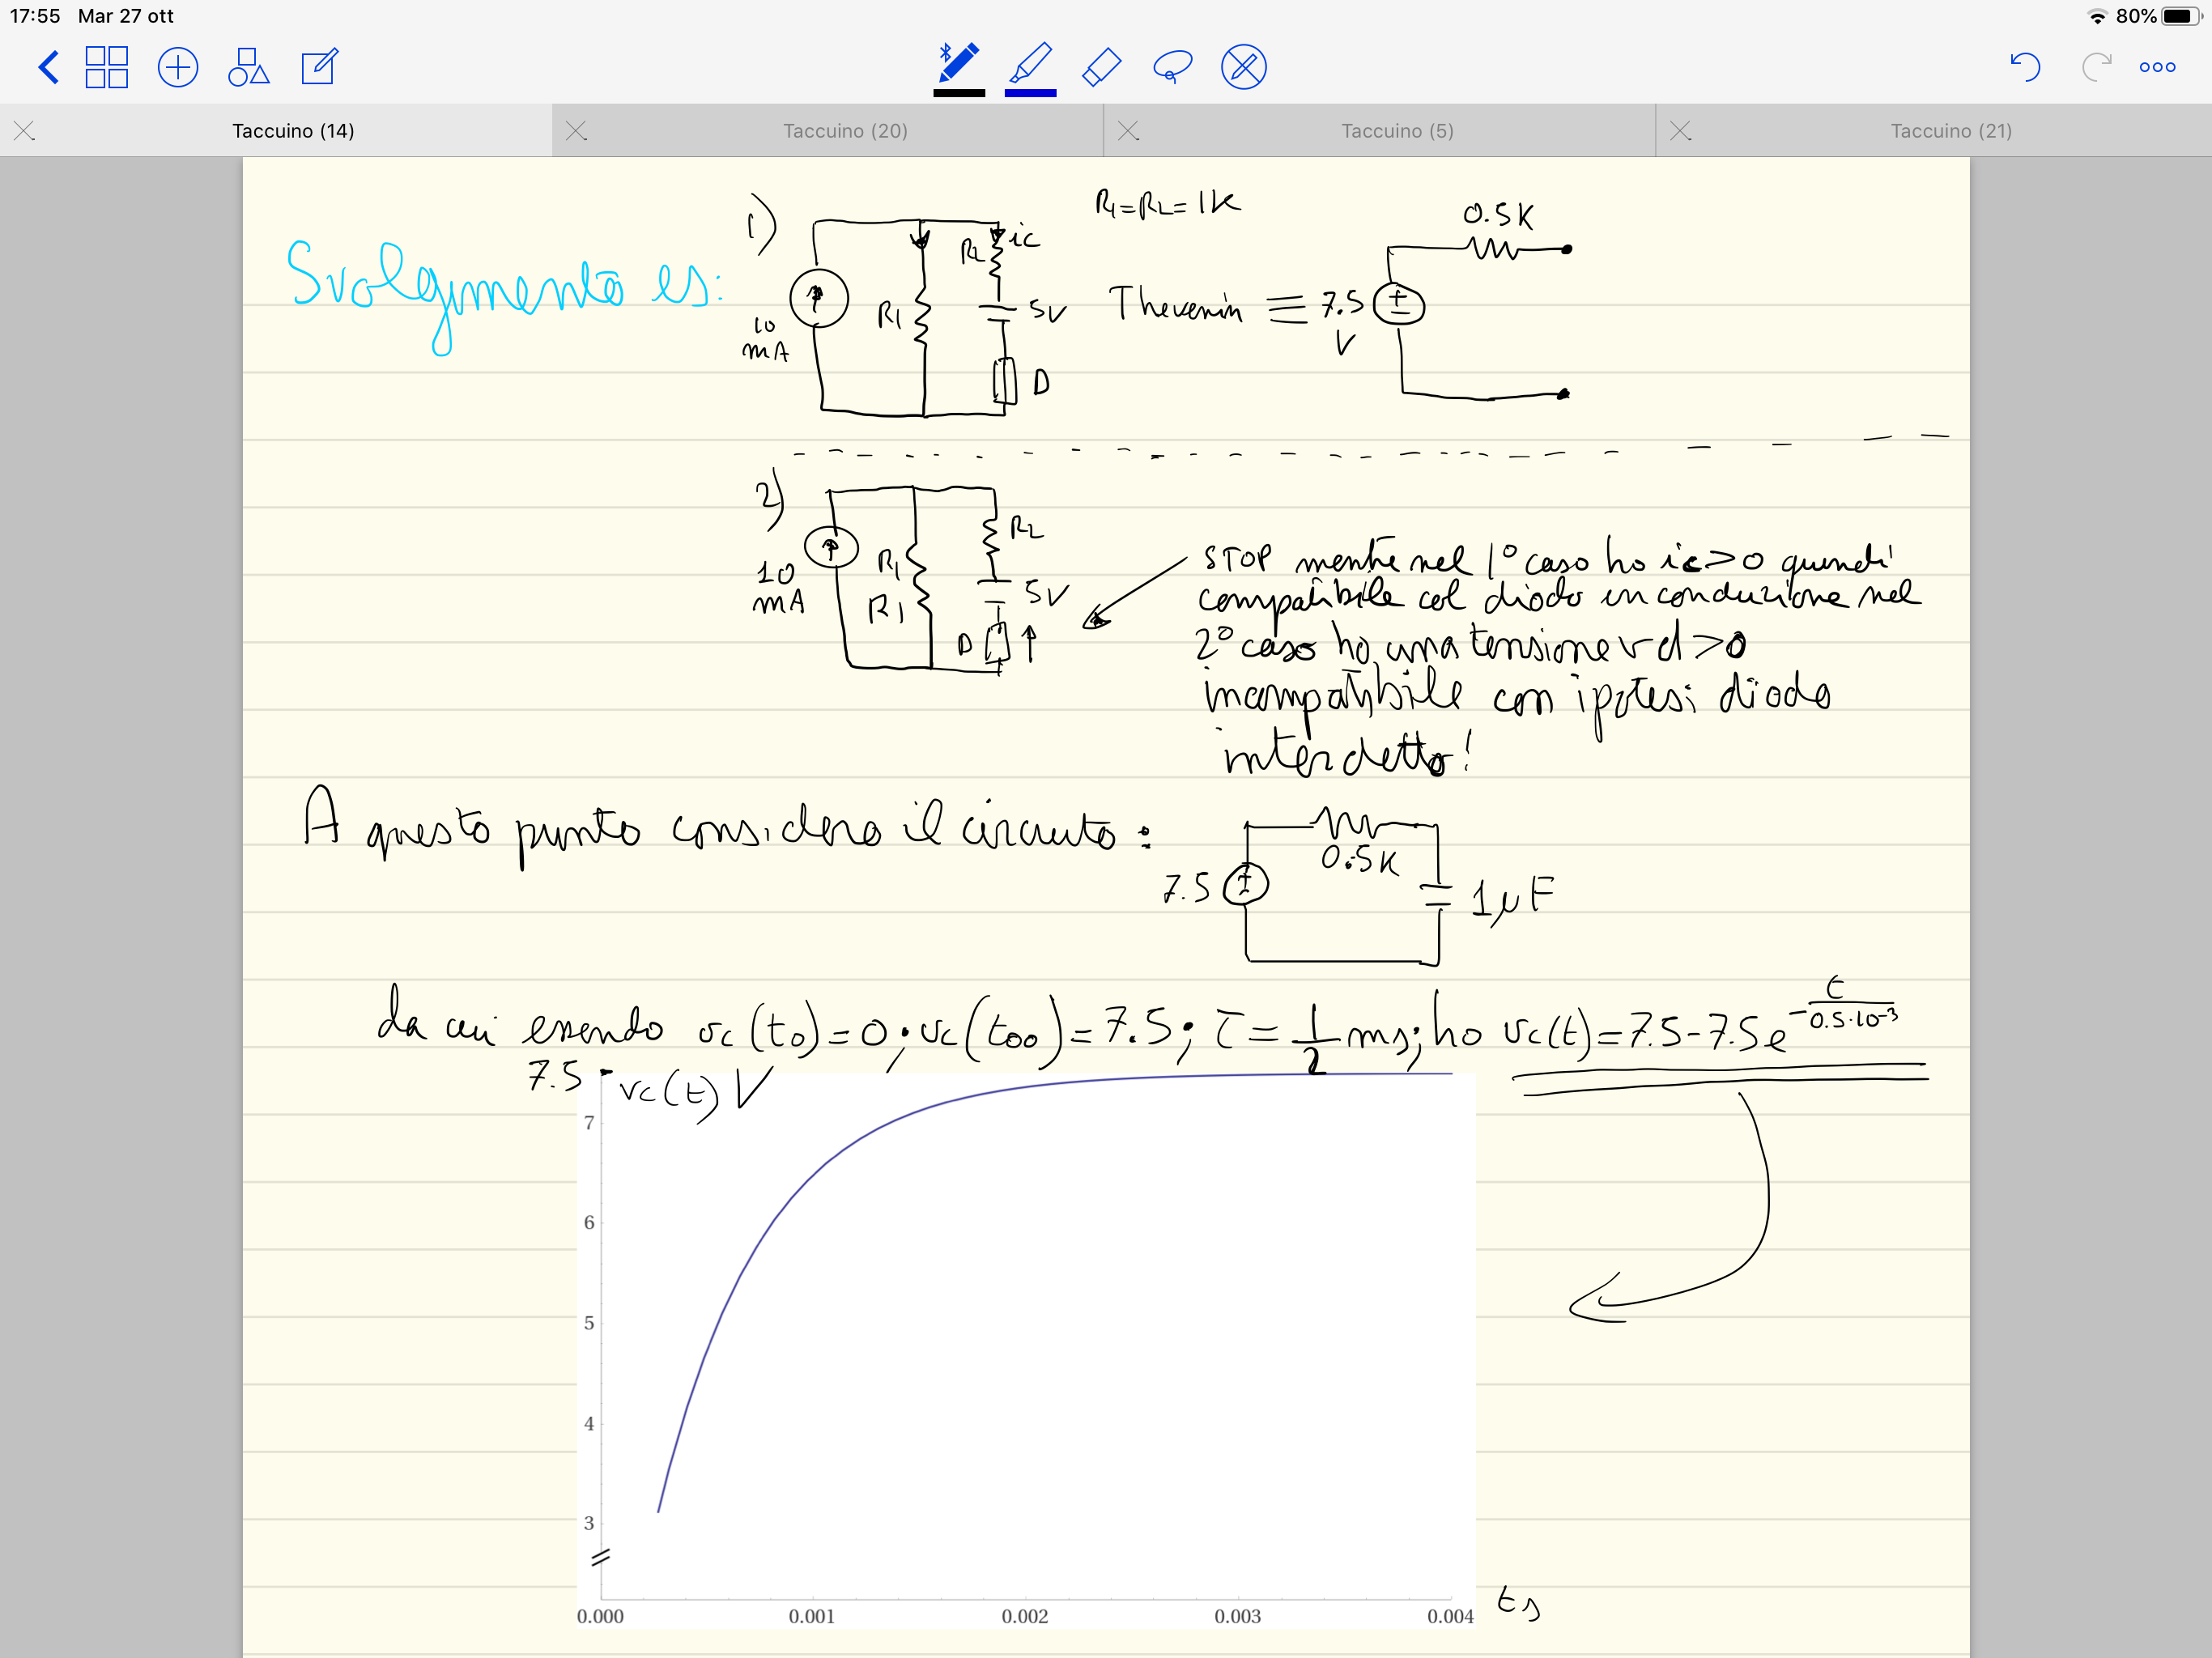 17:55 Mar 27 ott 80%
Taccuino (14) Taccuino (20) Taccuino (5) Taccuino (21)
Svolgimento es:
1)
R1=R2=1K
0.5K
ic
R2
R1
5V
10 mA
D
Thevenin ≡ 7.5 V
2)
R2
R1
10 mA
R1
5V
D
STOP mentre nel 1° caso ho ic>0 quindi
compatibile col diodo in conduzione nel
2° caso ho una tensione vd>0
incompatibile con ipotesi diodo
interdetto!
A questo punto considero il circuito:
0.5K
7.5
1μF
da cui essendo vc(t0)=0; vc(t∞)=7.5; τ=1/2 ms; ho vc(t)=7.5-7.5e^-t/0.5·10^-3
7.5 vc(t) V
7
6
5
4
3
0.000 0.001 0.002 0.003 0.004
t s